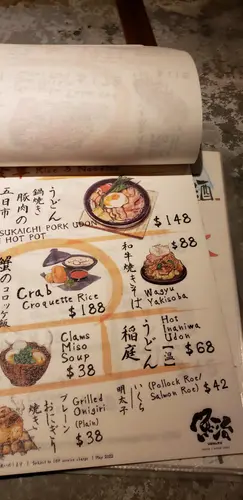 五日市
豚肉の
鍋焼き
うどん
SUKAICHI PORK UDON
HOT POT
$148
蟹のコロッケ飯
Crab
Croquette Rice
$188
和牛焼きそば
$88
Wagyu
Yakisoba
Clams
Miso
Soup
$38
稲庭
うどん
【温】
Hot
Inaniwa
Udon
$68
焼き
おにぎり
プレーン
Grilled
Onigiri
(Plain)
$38
明太子
いくら
(Pollock Roe/
Salmon Roe)
$42